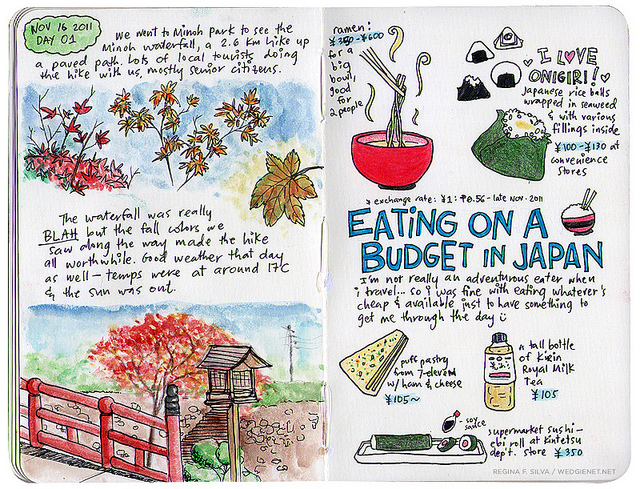 NOV 16 2011
DAY 01
we went to Minoh park to see the
Minoh waterfall, a 2.6 km hike up
a paved path. Lots of local tourists doing
the hike with us, mostly senior citizens.
The waterfall was really
BLAH but the fall colors we
saw along the way made the hike
all worthwhile. Good weather that day
as well - temps were at around 17°C
& the sun was out.
ramen:
¥350-¥600
for a
big
bowl,
good
for
2 people
I LOVE
ONIGIRI!
Japanese rice balls
wrapped in seaweed
& with various
fillings inside
¥100-¥130 at
convenience
stores
exchange rate: ¥1: ₱0.56 - late Nov. 2011
EATING ON A
BUDGET IN JAPAN
I'm not really an adventurous eater when
i travel... so i was fine with eating whatever's
cheap & available just to have something to
get me through the day
puff pastry
from 7-eleven
w/ ham & cheese
¥105~
a tall bottle
of Kirin
Royal Milk
Tea
¥105
- soy
sauce
supermarket sushi -
ebi roll at Kintetsu
dep't. store ¥350
REGINA F. SILVA / WEDGIENET.NET